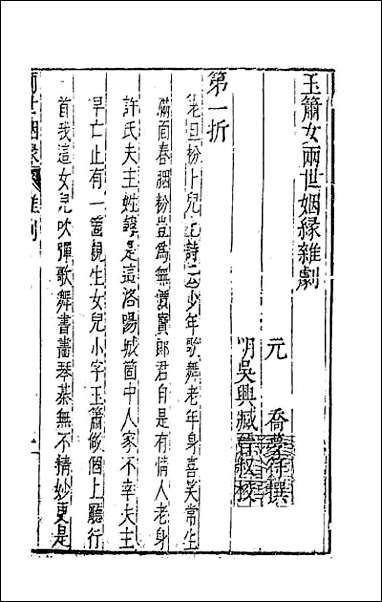 玉簫女兩世姻緣雜劇
元　喬夢符撰
明吳興臧晉叔校
第一折
老旦扮卜兒上詩云少年歌舞老年身喜笑常生
滿面春胭粉豈爲無價寶郎君自是有情人老身
許氏夫主姓韓是這洛陽城箇中人家不幸夫主
早亡止有一箇親生女兒小字玉簫做個上廳行
首我這女兒吹彈歌舞書畫琴棊無不精妙更是
兩世姻緣　雜劇　一